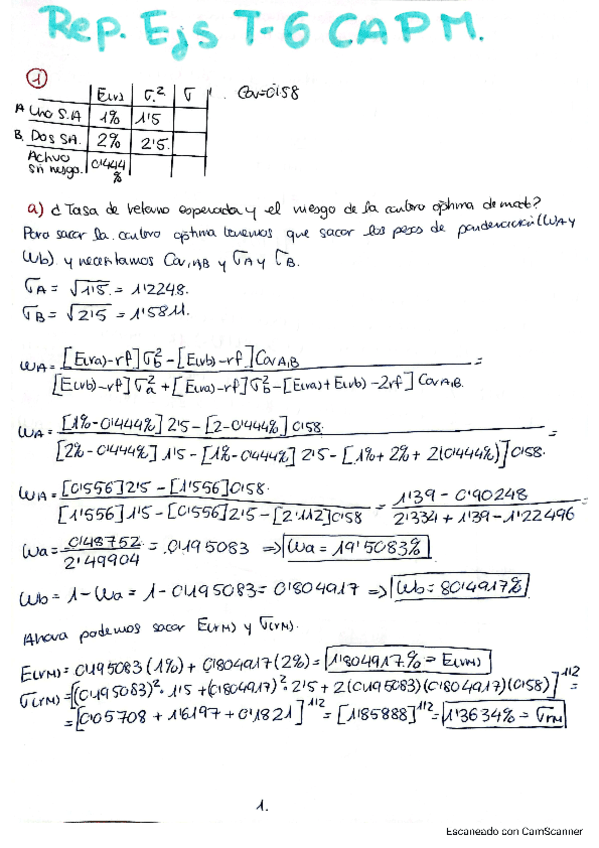 Rep. Ejs T-6 CAPM.
①
E(rs) σ.² σ . Cov=0'58
A Uno S.A 1% 1'5
B. Dos SA. 2% 2'5.
Activo sin riesgo. 0'444 %
a) ¿Tasa de retorno esperada y el riesgo de la cartera óptima de mdo?
Para sacar la cartera óptima tenemos que sacar los pesos de ponderación (WA y
Wb) y necesitamos Cov,AB y σA y σB.
σA = √1'5 = 1'2248.
σB = √2'5 = 1'5811.
WA = [E(ra)-rf]σb² - [E(rb)-rf]CovA,B =
[E(rb)-rf]σa² + [E(ra)-rf]σb² - [E(ra)+E(rb)-2rf]CovA,B.
WA = [1%-0'444%]2'5 - [2-0'444%]0'58. =
[2%-0'444%]1'5 - [1%-0'444%]2'5 - [1%+2%+2(0'444%)]0'58.
WA = [0'556]2'5 - [1'556]0'58. = 1'39 - 0'90248 =
[1'556]1'5 - [0'556]2'5 - [2'112]0'58 2'334 + 1'39 - 1'22496
Wa = 0'48752 = 0'195083 ⇒ Wa = 19'5083%
2'49904
Wb = 1 - Wa = 1 - 0'195083 = 0'804917 ⇒ Wb = 80'4917%
Ahora podemos sacar E(rM) y σ(rM).
E(rM) = 0'195083(1%) + 0'804917(2%) = 1'804917.% = E(rM)
σ(rM) = [(0'195083)²·1'5 + (0'804917)²·2'5 + 2(0'195083)(0'804917)(0'58)]^1/2 =
= [0'05708 + 1'6197 + 0'1821]^1/2 = [1'85888]^1/2 = 1'3634% = σrM
1.
Escaneado con CamScanner